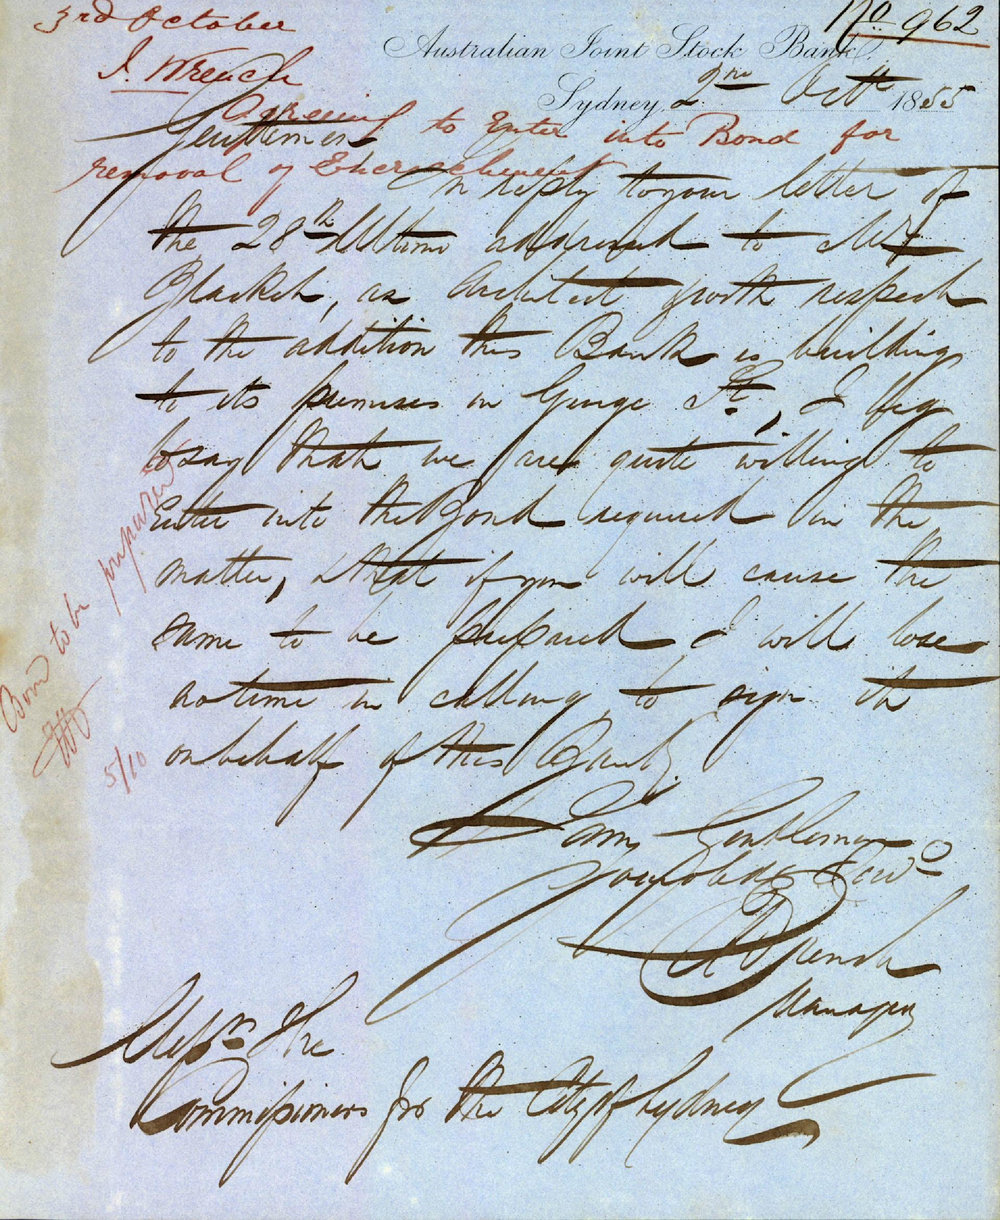 3rd October
No. 962
J. Wrench
Australian Joint Stock Bank,
Sydney, 2nd Octr 1855
Agreeing to Enter into Bond for
removal of Encroachment
Gentlemen
In reply to your letter of
the 28th Ultimo addressed to Mr
Blacket, as Architect with respect
to the addition this Bank is building
to its premises in George St, I beg
to say that we are quite willing to
Enter into the Bond required in the
matter, & that if you will cause the
same to be prepared I will lose
no time in calling to sign it
on behalf of this Bank.
Bond to be prepared
5/10
I am, Gentlemen
Your obdt Servt
Wrench
Manager
Messrs The
Commissioners for the City of Sydney